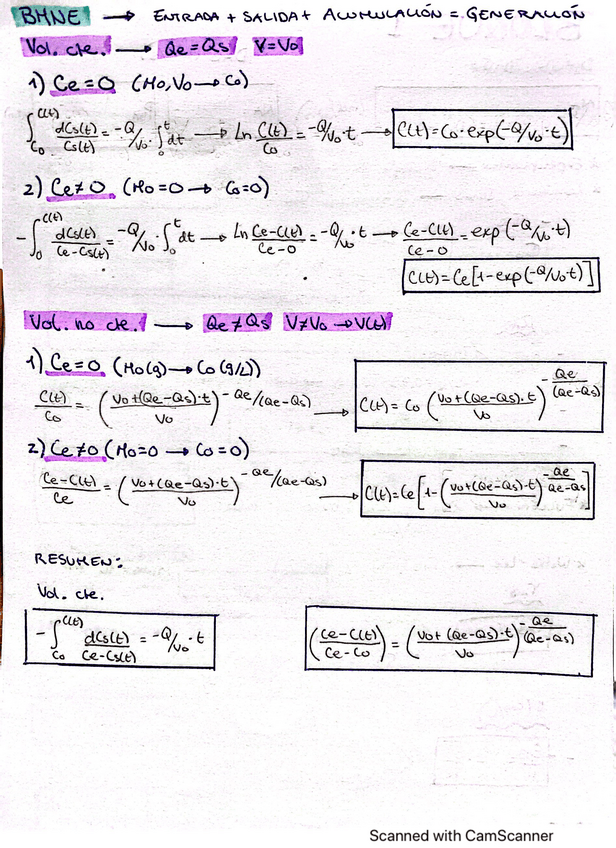 BMNE → ENTRADA + SALIDA + ACUMULACIÓN = GENERACIÓN
Vol. cte. → Qe = Qs V = Vo
1) Ce = 0 (Mo, Vo → Co)
∫_{Co}^{C(t)} dCs(t)/Cs(t) = -Q/Vo · ∫_0^t dt → Ln C(t)/Co = -Q/Vo · t → C(t) = Co · exp(-Q/Vo · t)
2) Ce ≠ 0 (Mo = 0 → Co = 0)
-∫_0^{C(t)} dCs(t)/(Ce - Cs(t)) = -Q/Vo · ∫_0^t dt → Ln (Ce - C(t))/(Ce - 0) = -Q/Vo · t → (Ce - C(t))/(Ce - 0) = exp(-Q/Vo · t)
C(t) = Ce [1 - exp(-Q/Vo · t)]
Vol. no cte. → Qe ≠ Qs V ≠ Vo → V(t)
1) Ce = 0 (Mo(g) → Co (g/L))
C(t)/Co = ((Vo + (Qe - Qs) · t)/Vo)^{-Qe/(Qe - Qs)} → C(t) = Co ((Vo + (Qe - Qs) · t)/Vo)^{-Qe/(Qe - Qs)}
2) Ce ≠ 0 (Mo = 0 → Co = 0)
(Ce - C(t))/Ce = ((Vo + (Qe - Qs) · t)/Vo)^{-Qe/(Qe - Qs)} → C(t) = Ce [1 - ((Vo + (Qe - Qs) · t)/Vo)^{-Qe/(Qe - Qs)}]
RESUMEN:
Vol. cte.
-∫_{Co}^{C(t)} dCs(t)/(Ce - Cs(t)) = -Q/Vo · t ((Ce - C(t))/(Ce - Co)) = ((Vo + (Qe - Qs) · t)/Vo)^{-Qe/(Qe - Qs)}
Scanned with CamScanner